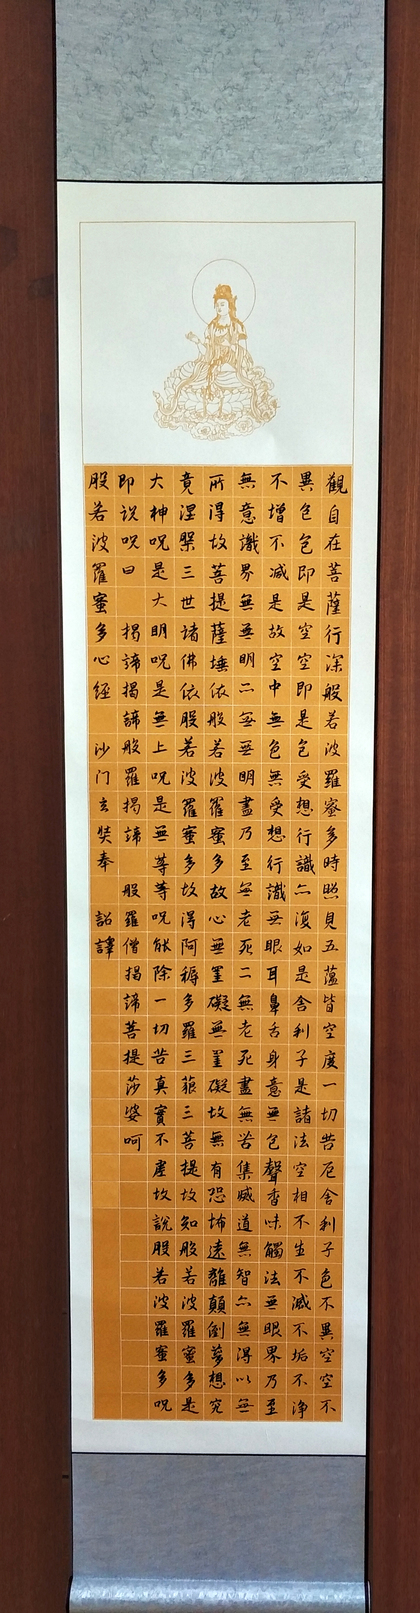 觀自在菩薩行深般若波羅蜜多時照見五蘊皆空度一切苦厄舍利子色不異空空不
異色色即是空空即是色受想行識亦復如是舍利子是諸法空相不生不滅不垢不淨
不增不减是故空中無色無受想行識無眼耳鼻舌身意無色聲香味觸法無眼界乃至
無意識界無無明亦無無明盡乃至無老死亦無老死盡無苦集滅道無智亦無得以無
所得故菩提薩埵依般若波羅蜜多故心無罣礙無罣礙故無有恐怖遠離顛倒夢想究
竟涅槃三世諸佛依般若波羅蜜多故得阿耨多羅三藐三菩提故知般若波羅蜜多是
大神呪是大明呪是無上呪是無等等呪能除一切苦真實不虛故說般若波羅蜜多呪
即説呪曰 揭諦揭諦般羅揭諦 般羅僧揭諦菩提莎婆呵
般若波羅蜜多心經 沙门玄奘奉 詔譯